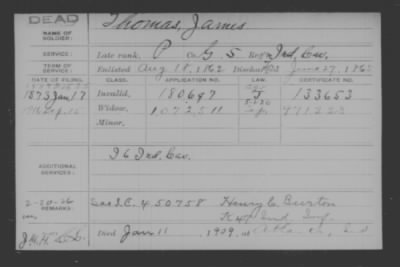 DEAD
NAME OF SOLDIER: Thomas, James
SERVICE: Late rank, P Co. G, 5 Reg't Ind. Cav.
TERM OF SERVICE: Enlisted Aug 18, 1862 Discharged June 27, 1865
DATE OF FILING. CLASS. APPLICATION NO. LAW. CERTIFICATE NO.
1873 Jan 17 Invalid, 180.697 133653
1916 Sep. 15 Widow, 1072511 971223
Minor,
ADDITIONAL SERVICES: I 6 Ind. Cav.
2-20-26
REMARKS: See I.C. 450758 Henry C. Burton
Died Jan 11, 1909, at